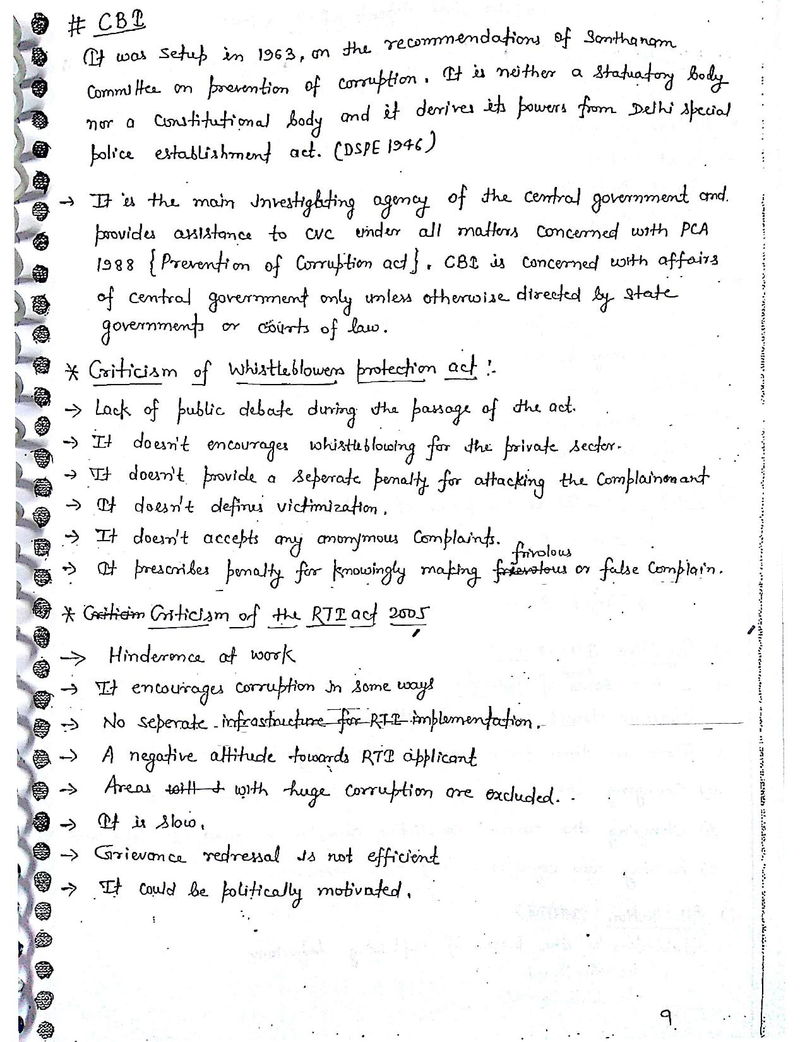 # CBI
It was setup in 1963, on the recommendations of Santhanam
Committee on prevention of corruption. It is neither a Statuatory body
nor a Constitutional body and it derives its powers from Delhi special
police establishment act. (DSPE 1946)
→ It is the main Investigating agency of the central government and
provides assistance to CVC under all matters Concerned with PCA
1988 {Prevention of Corruption act}. CBI is concerned with affairs
of central government only unless otherwise directed by state
governments or courts of law.
* Criticism of Whistleblowers protection act :-
→ Lack of public debate during the passage of the act.
→ It doesn't encourages whistleblowing for the private sector.
→ It doesn't provide a seperate penalty for attacking the Complainant
→ It doesn't defines victimization.
→ It doesn't accepts any anonymous Complaints.
→ It prescribes penalty for knowingly making frivolous or false Complain.
* Criticism of the RTI act 2005
→ Hinderence at work
→ It encourages corruption in some ways
→ No seperate infrastructure for RTI implementation.
→ A negative attitude towards RTI applicant
→ Areas with huge corruption are excluded.
→ It is slow.
→ Grievance redressal is not efficient
→ It could be politically motivated.
9